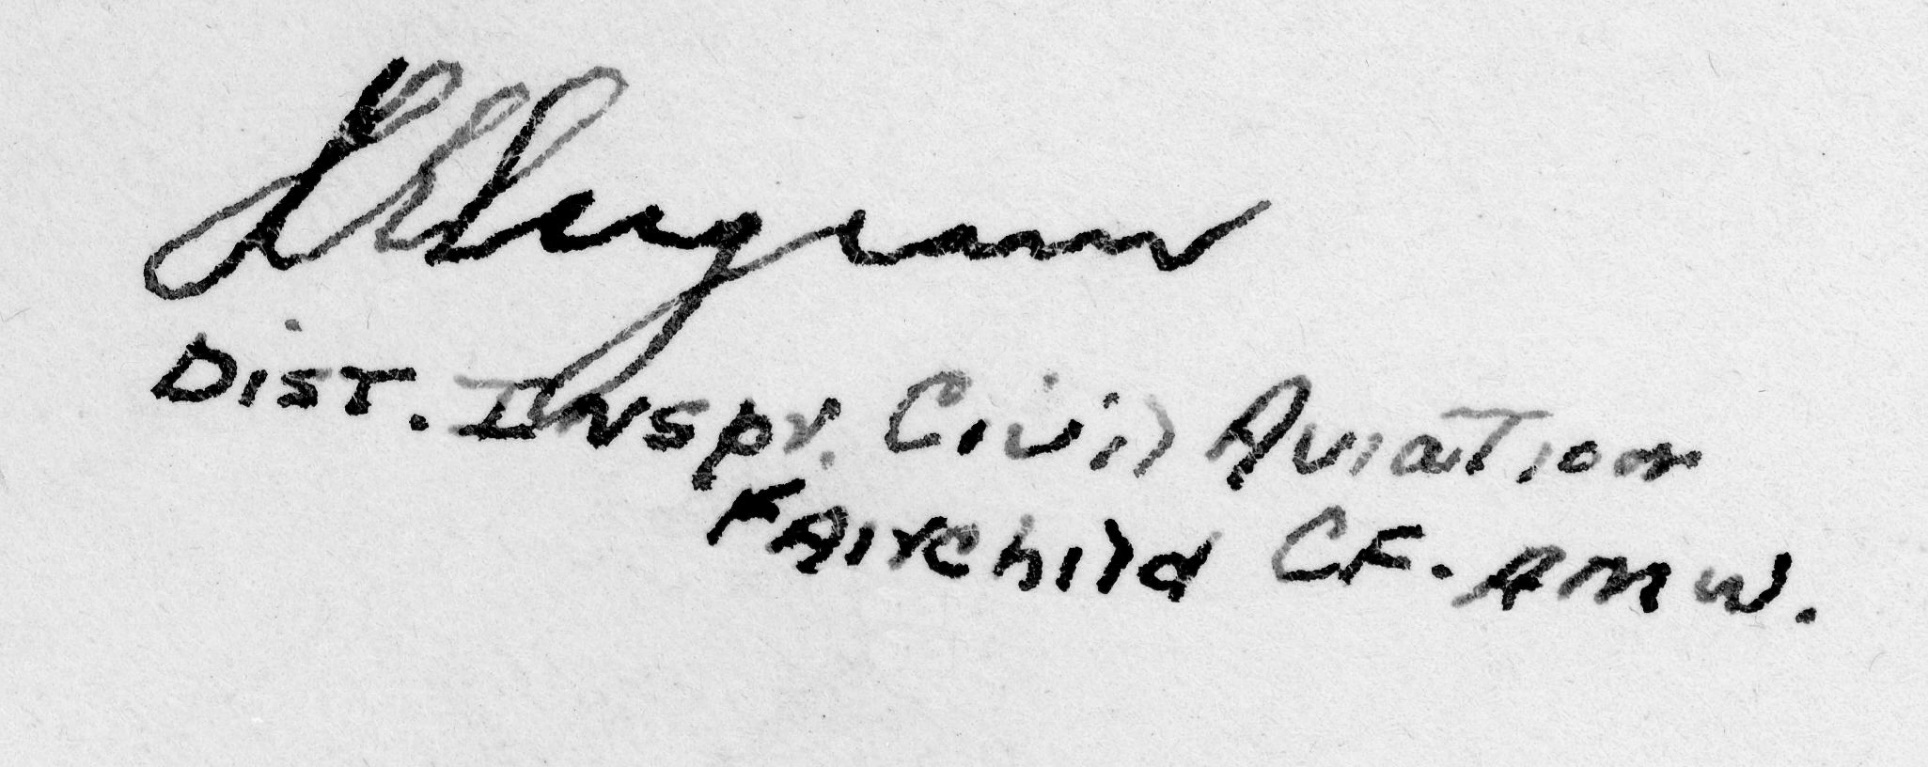 Dist. Inspr. Civil Aviation
FAirchild CF. AMW.